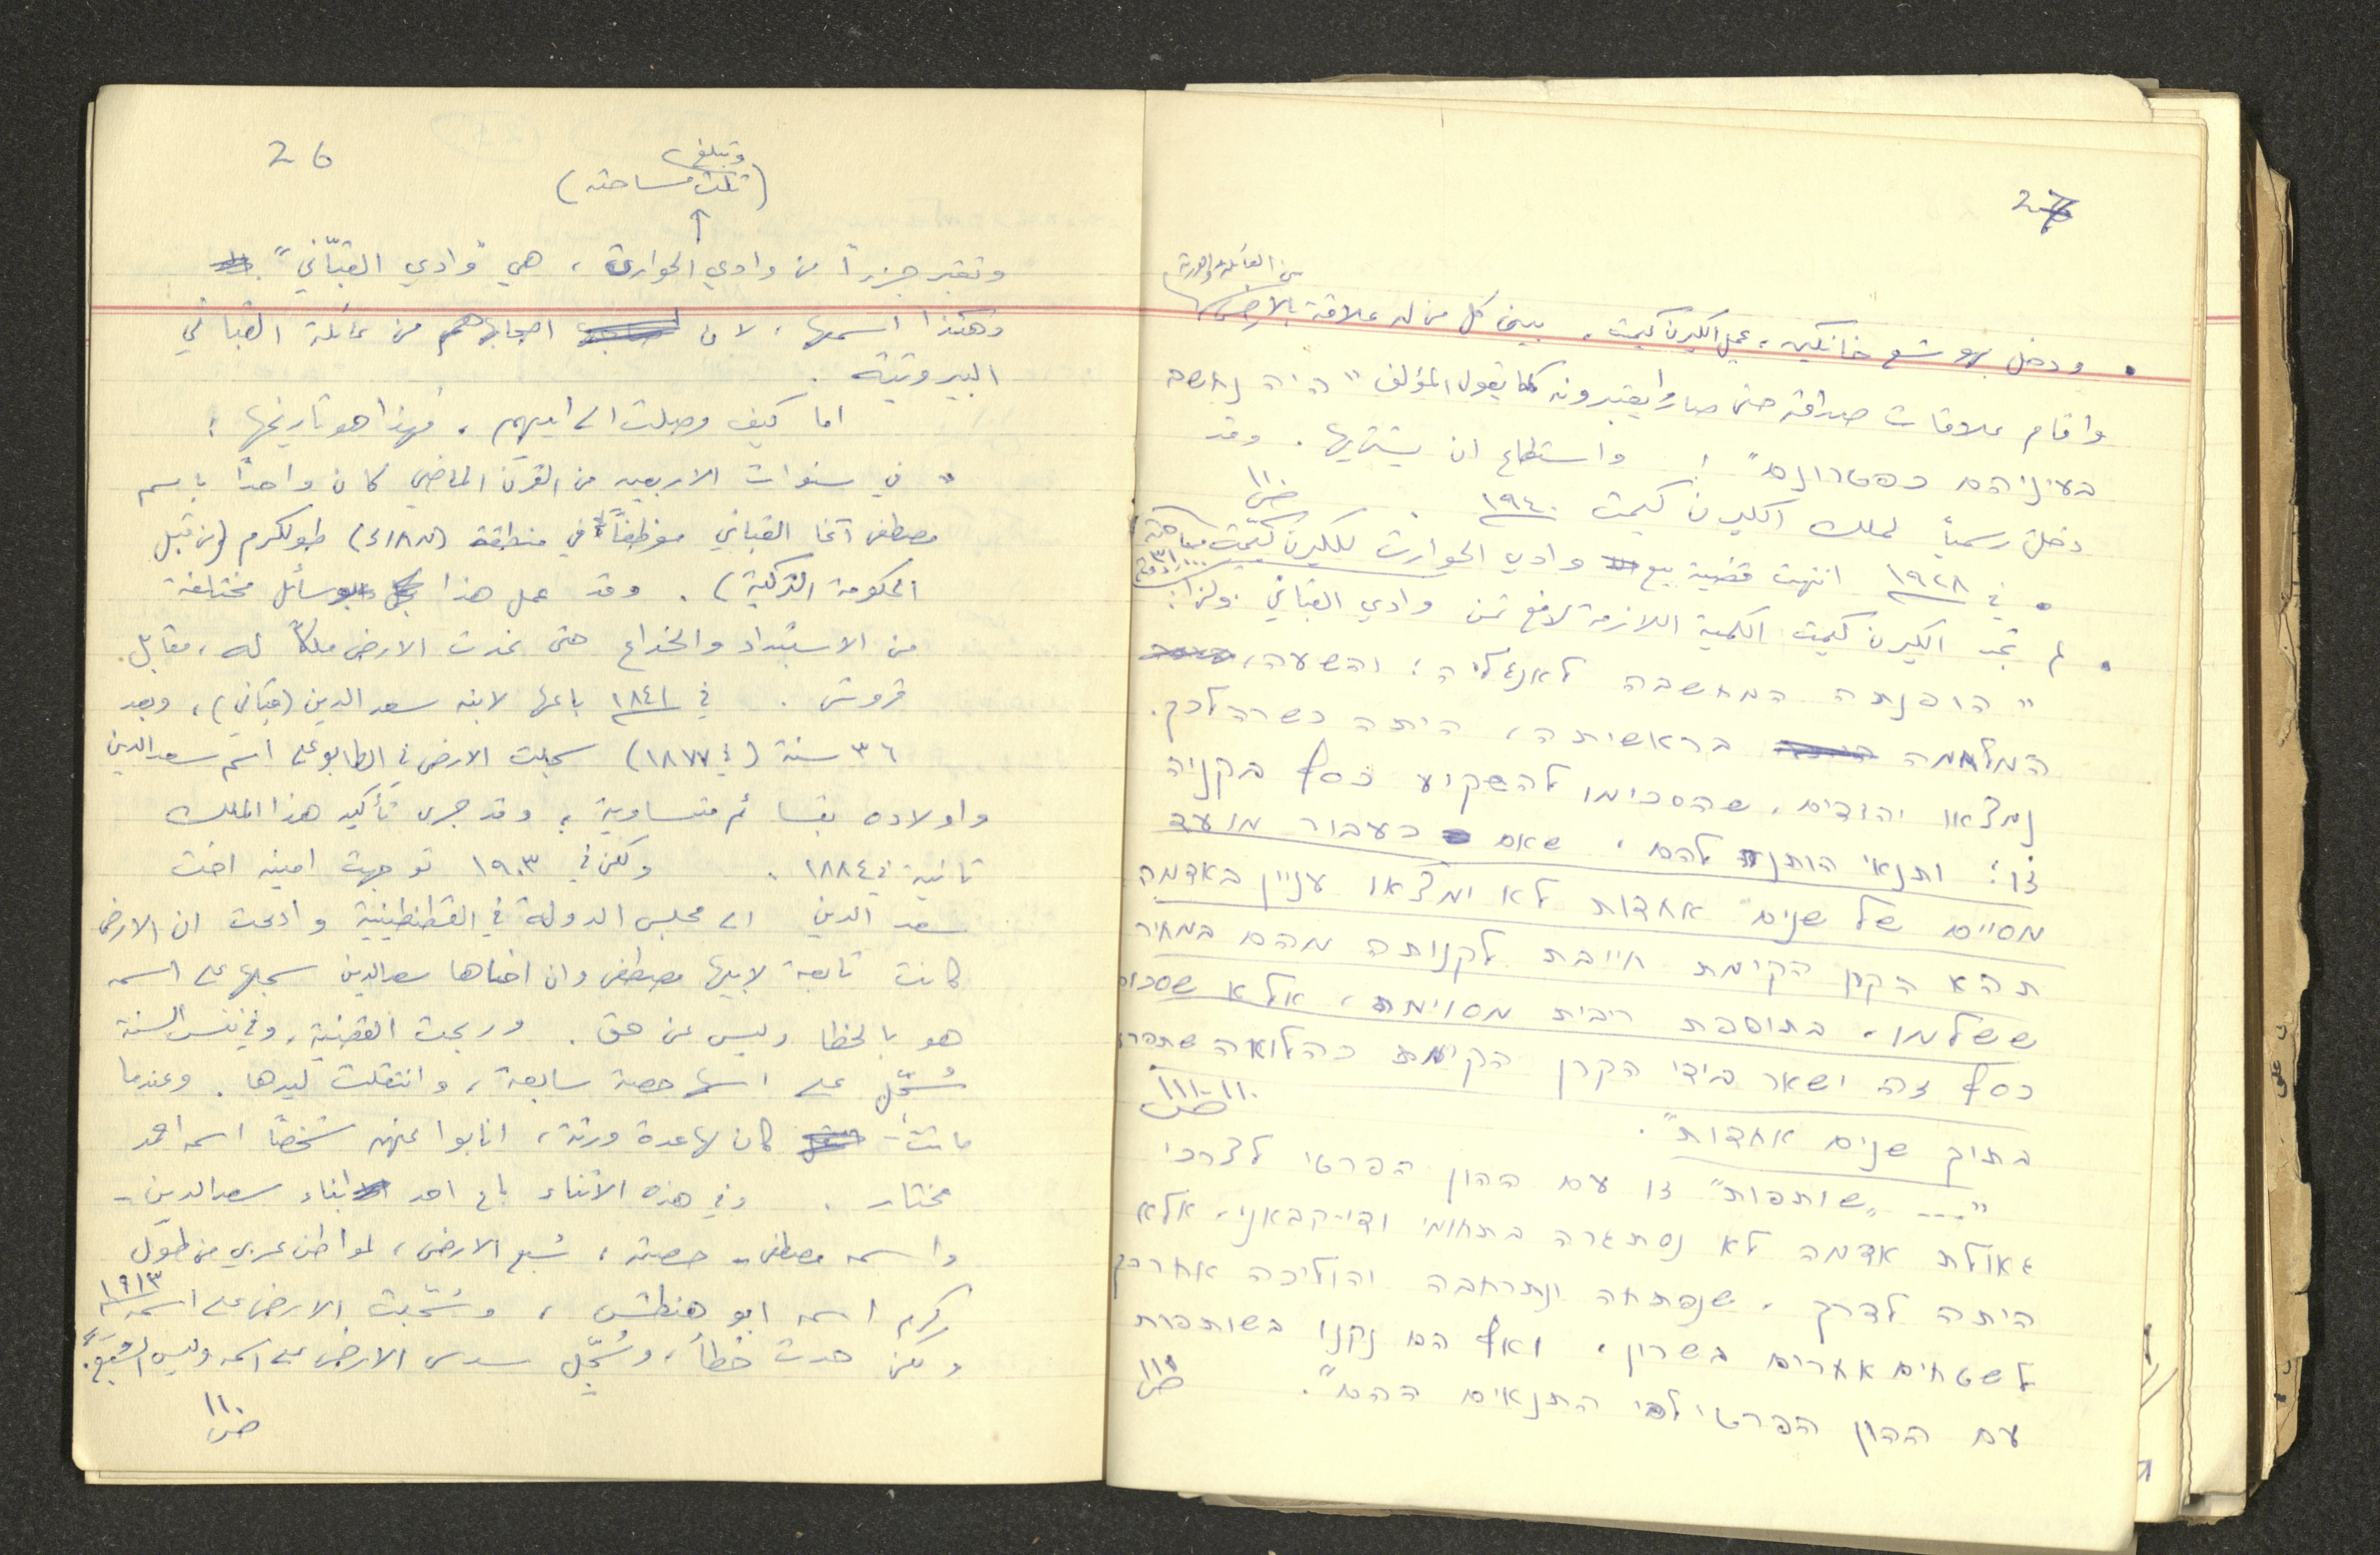 26
وتبلغ
(ثلث مساحته)
وتعتبر جزءاً من وادي الحوارث، هي "وادي القبّاني"
وهكذا اسمها، لان اصحابها هم من عائلة القباني
البيروتية.
اما كيف وصلت الى ايديهم، فهذا هو تاريخها:
في سنوات الاربعين من القرن الماضي كان واحداً باسم
مصطفى آغا القباني موظفاً في منطقة طولكرم (من قبل
الحكومة التركية). وقد عمل هذا بوسائل مختلفة
من الاستبداد والخداع حتى غدت الارض ملكاً له، مقابل
قروش. في ١٨٤١ باعها لابنه سعد الدين (قباني)، وبعد
٣٦ سنة (في ١٨٧٧) سجلت الارض في الطابو على اسم سعد الدين
واولاده بقسائم متساوية، وقد جرى تأكيد هذا الملك
ثانية في ١٨٨٤. ولكن في ١٩٠٣ توجهت امينه اخت
سعد الدين الى مجلس الدولة في القسطنطينية وادعت ان الارض
كانت تابعة لابيها مصطفى وان اخاها سعد الدين سجلها على اسمه
هو بالخطا وليس عن حق. وربحت القضية، وفي نفس السنة
سُجّل على اسمها حصة سابعة، وانتقلت ليدها. وعندما
ماتت - كان لها عدة ورثة، انابوا عنهم شخصاً اسمه احمد
مختار. وفي هذه الاثناء باع احد ابناء سعد الدين -
واسمه مصطفى - حصته، سُبع الارض، لمواطن عربي من طول
كرم اسمه ابو هنطش، وسُجّلت الارض على اسمه ١٩١٣
ولكن حدث خطأ، وسُجّل سدس الارض على اسمه وليس السُبع.
ص ١١٠
27
من العائلة والورثة
• ودخل يهوشع خانكين، عميل الكيرن كيمت، بين كل من له علاقة بالارض
واقام علاقات صداقة حتى صاروا يعتبرونه كما يقول المؤلف "היה נחשב
בעיניהם כפטרונם"! واستطاع ان يشتريها. وقد
دخلت رسمياً لملك الكيرن كيمت ١٩٤٠. ص ١١٠
• في ١٩٢٨ انتهت قضية بيع وادي الحوارث للكيرن كيمت
• لم تجد الكيرن كيمت الكمية اللازمة لدفع ثمن وادي القباني. ولذا:
"הופנתה המחשבה לאנגליה; והשעה,
המלחמה בראשיתה, היתה כשרה לכך.
נמצאו יהודים, שהסכימו להשקיע כסף בקניה
זו; ותנאי הותנה להם, שאם כעבור מועד
מסוים של שנים אחדות לא ימצאו עניין באדמה
תהא הקרן הקימת חייבת לקנותה מהם במחיר
ששלמו, בתוספת ריבית מסוימת, אלא שסכום
כסף זה ישאר בידי הקרן הקימת כהלואה שתפרע
בתוך שנים אחדות". ص ١١٠-١١١
"... "שותפות" זו עם ההון הפרטי לצרכי
גאולת אדמה לא נסתגרה בתחומי ודי-קבאני, אלא
היתה לדרך, שנפתחה ונתרחבה והוליכה אחר כך
לשטחים אחרים בשרון, ואף הם נקנו בשותפות
עם ההון הפרטי לפי התנאים ההם". ص ١١١